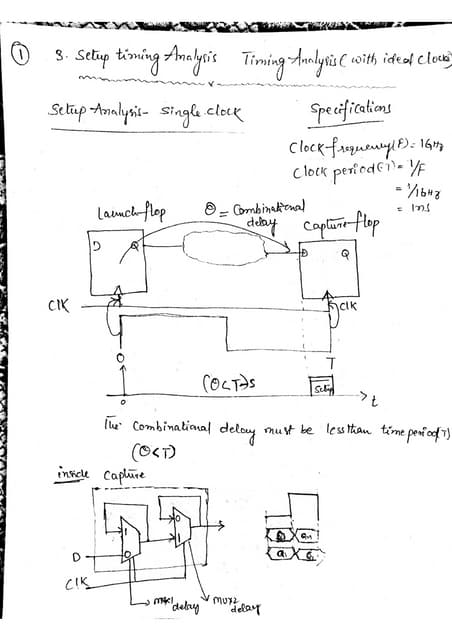 ① 3. Setup timing Analysis Timing Analysis (with ideal clocks)
Setup Analysis- single clock Specifications
Clock frequency(F)= 1GHz
Clock period(T)= 1/F
= 1/1GHz
= 1ns
Launch flop Θ = Combinational delay Capture flop
D Q D Q
CLK CLK
O T
Setup
O t
The Combinational delay must be less than time period(T)
(Θ<T)
inside Capture
1 0
0 1
D
CLK
mux1 delay mux2 delay